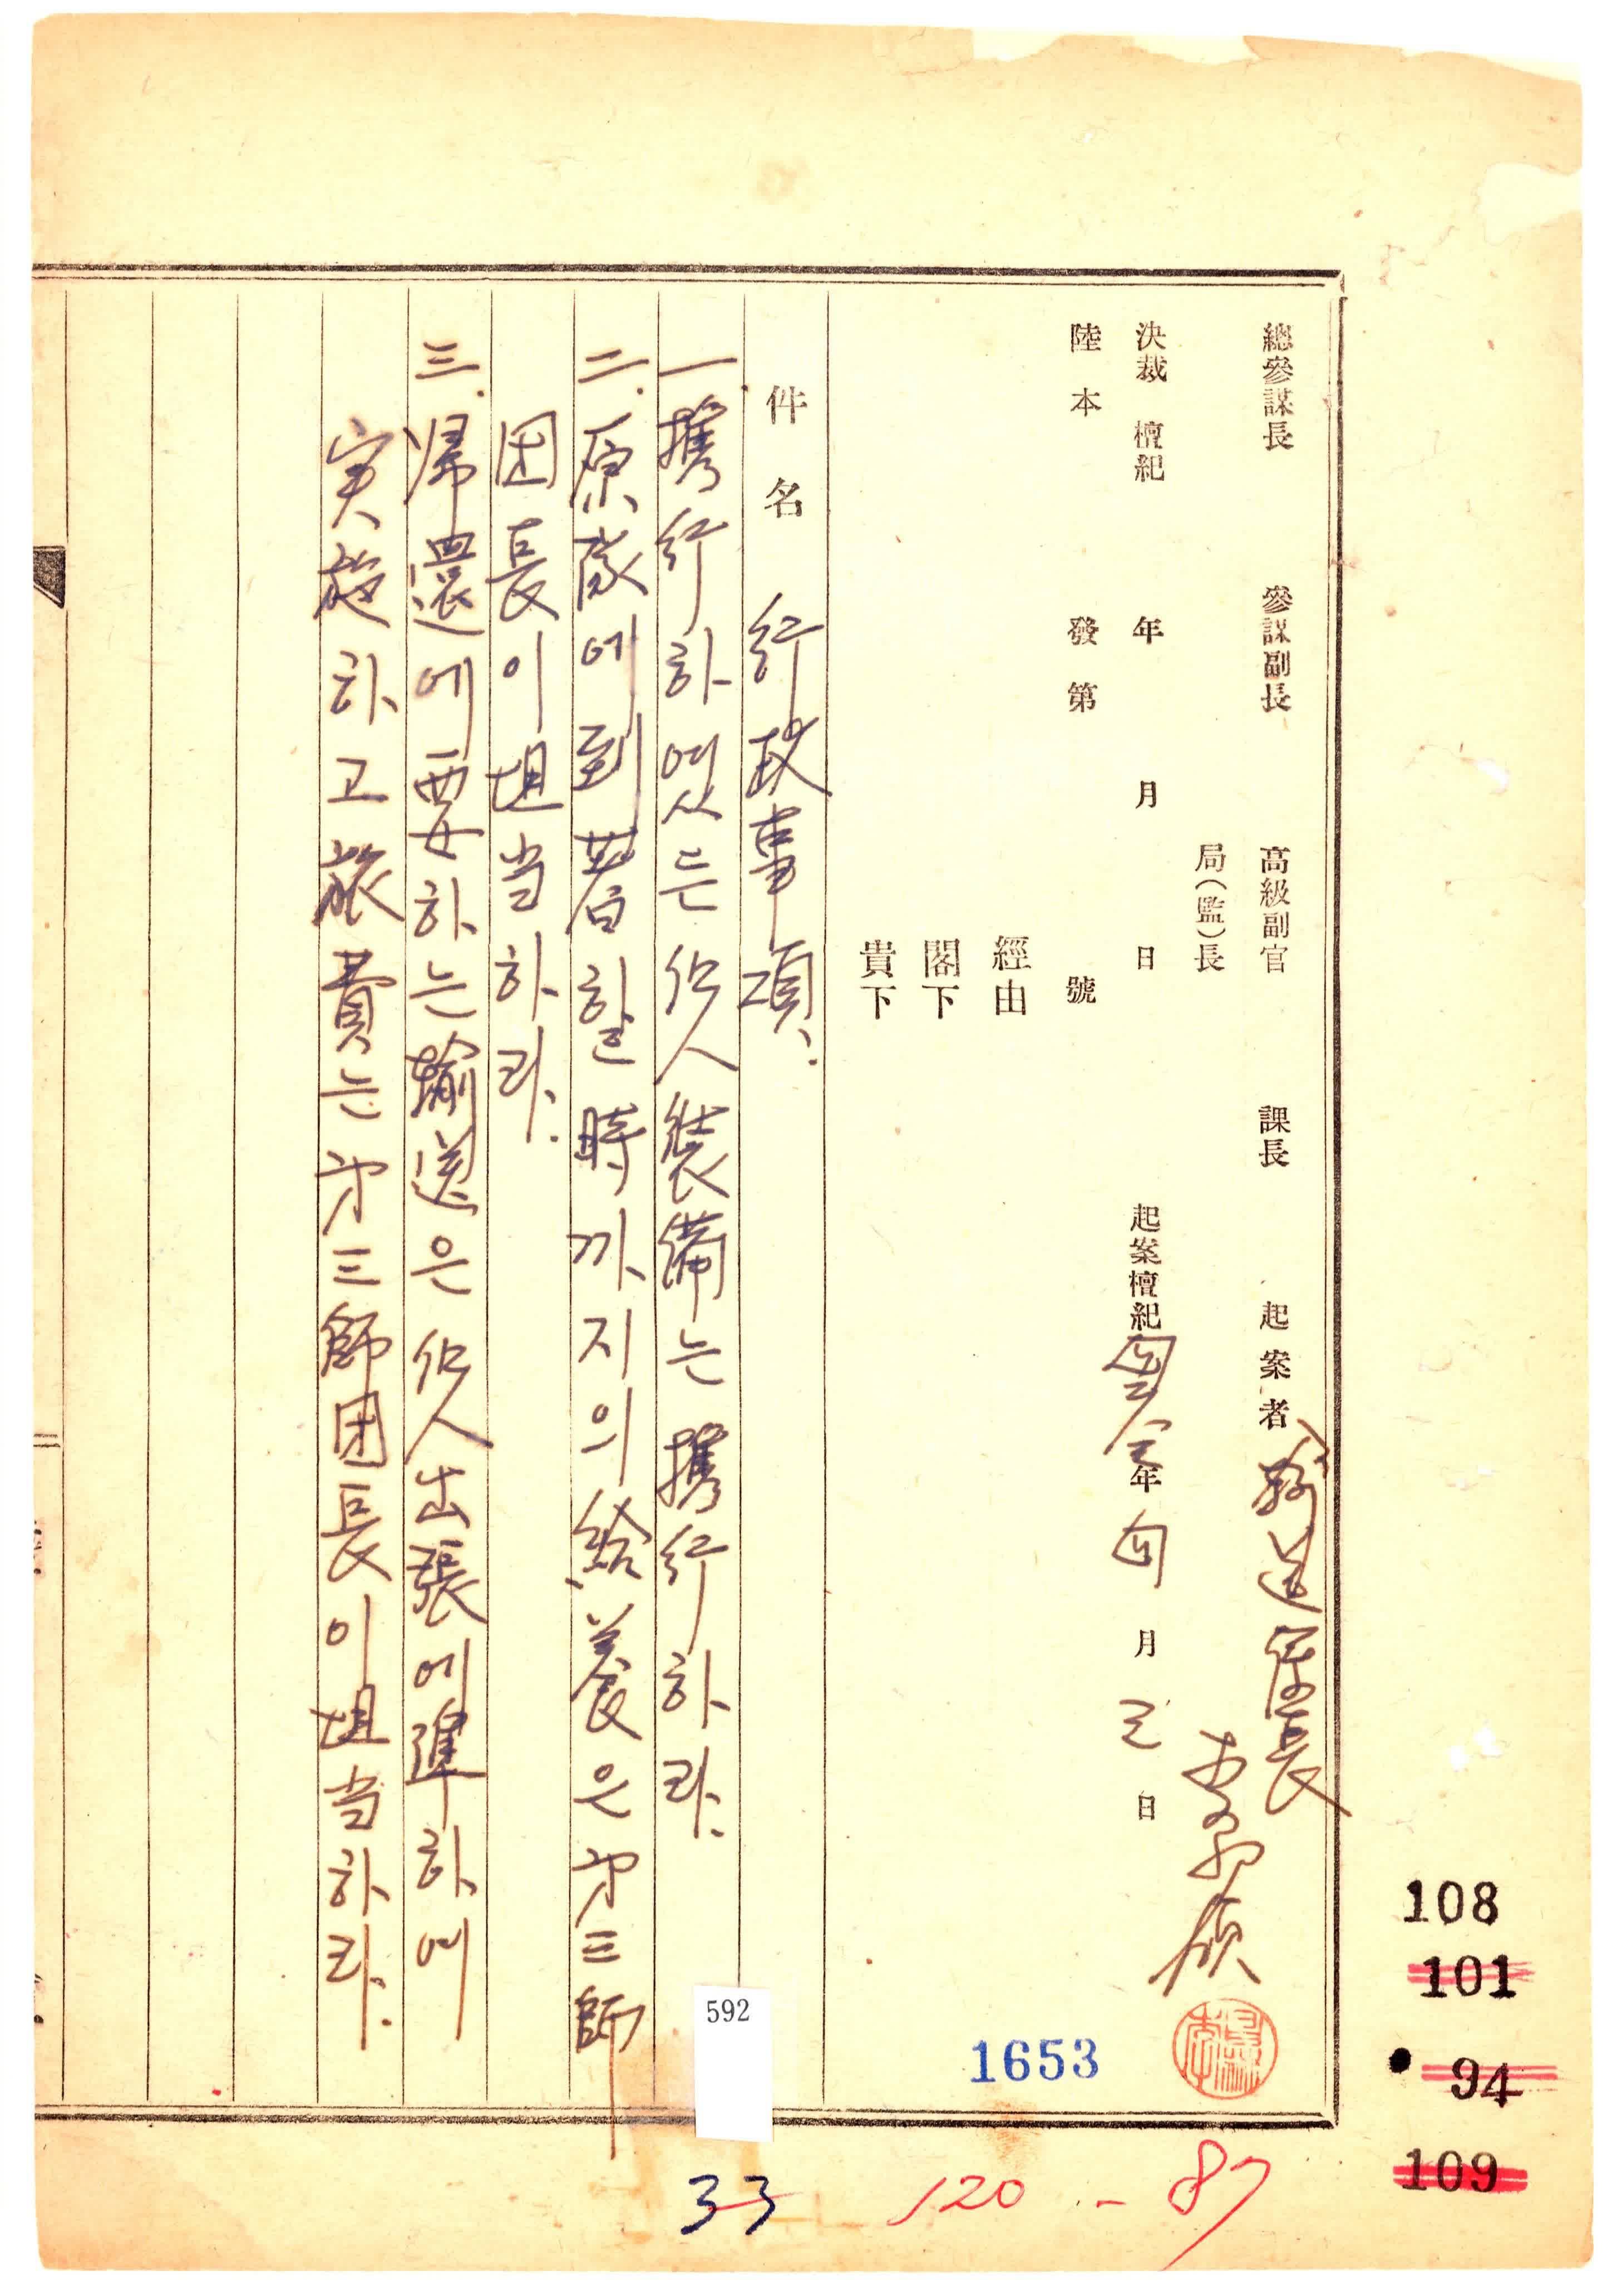 總參謀長 參謀副長 高級副官 課長 起案者 係長
局(監)長 李
決裁 檀紀 年 月 日 起案檀紀 年 四 月 三 日
陸本 發第 號
經由
閣下
貴下
件名 行政事項.
一. 携行하였든個人裝備는携行하라.
二. 原隊에到着할時까지의給養은第三師
団長이担当하라.
三. 帰還에要하는輸送은個人出張에準하여
実施하고旅費는第三師団長이担当하라.
108
101
94
109
1653
592
33
120 - 87